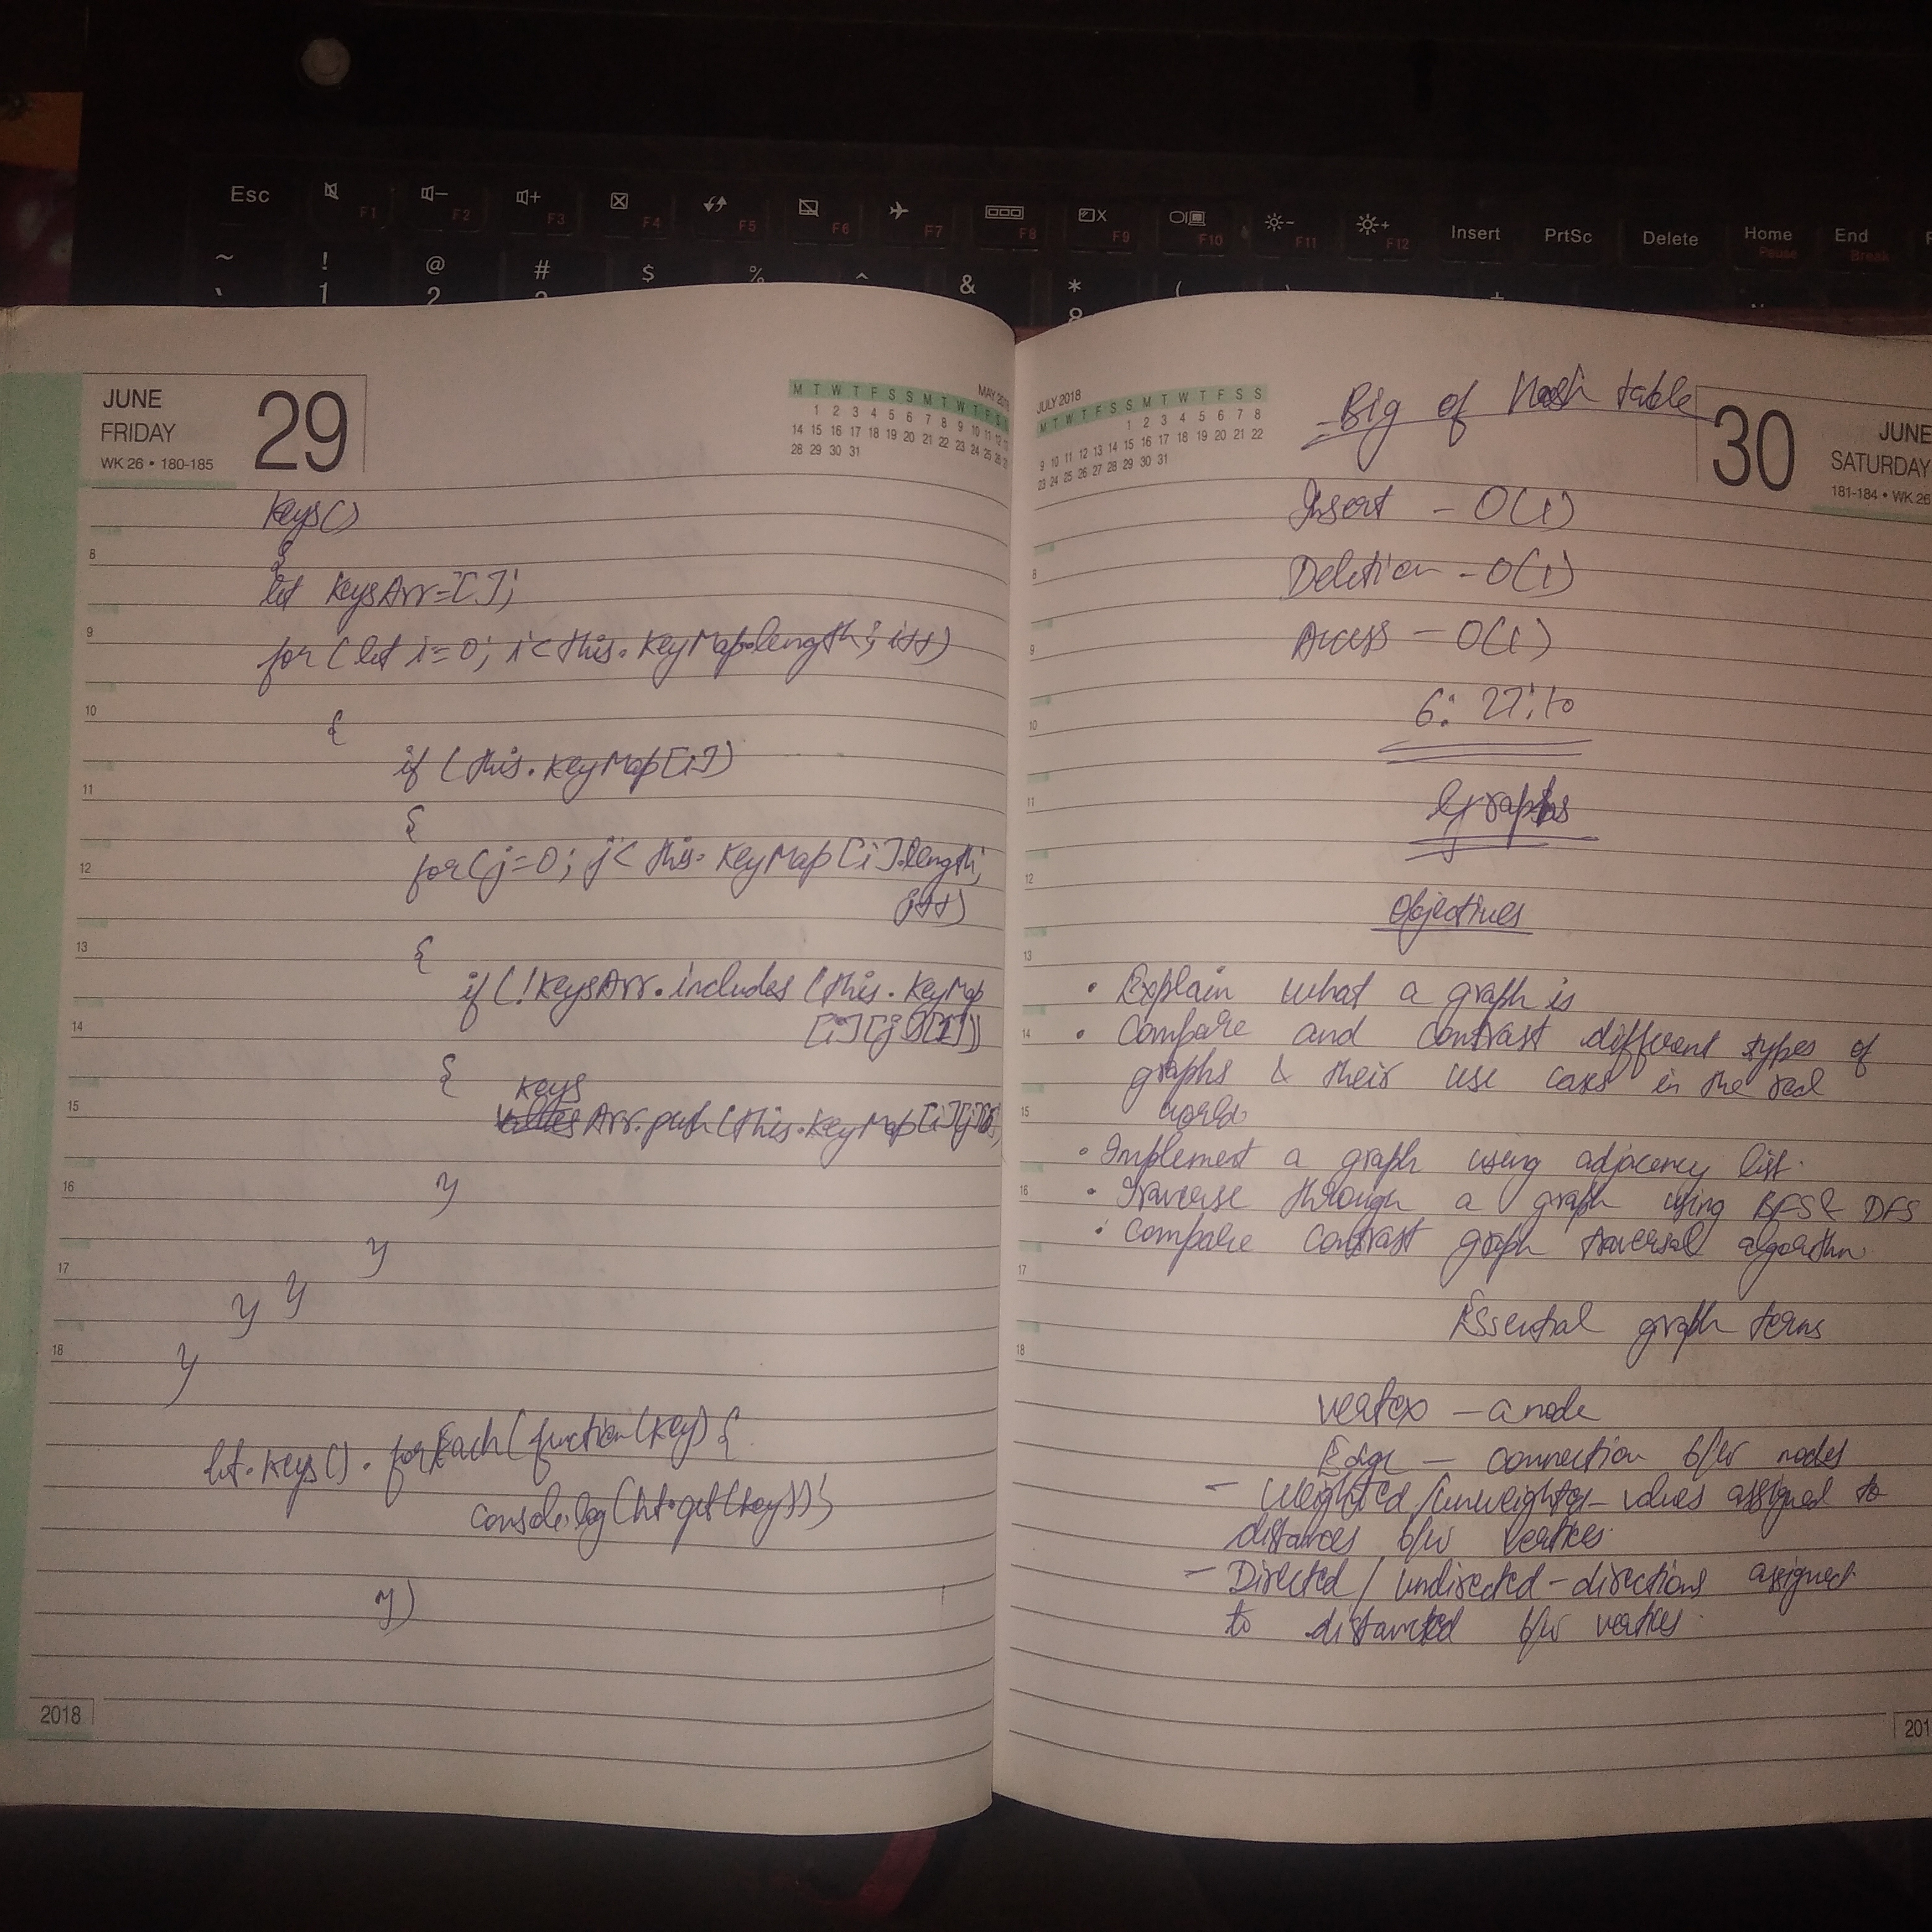 Esc
F1 F2 F3 F4 F5 F6 F7 F8 F9 F10 F11 F12
Insert PrtSc Delete Home End
Pause Break
~ ! @ # $ % ^ & * (
1 2 8
JUNE
FRIDAY
WK 26 • 180-185
29
M T W T F S S M T W T F S S
1 2 3 4 5 6 7 8 9 10 11 12 13
14 15 16 17 18 19 20 21 22 23 24 25 26 27
28 29 30 31
Keys()
{
let KeysArr=[];
for (let i=0; i<this.KeyMap.length; i++)
{
if (this.KeyMap[i])
{
for(j=0; j< this.KeyMap[i].length;
j++)
{
if (!KeysArr.includes (this.KeyMap
[i][j]
{ Keys
Arr.push(this.KeyMap[i][j]
}
}
} }
}
ht.Keys().forEach(function(Key) {
console.log(ht.get(key));
})
8
9
10
11
12
13
14
15
16
17
18
2018
JULY 2018
M T W T F S S M T W T F S S
1 2 3 4 5 6 7 8
9 10 11 12 13 14 15 16 17 18 19 20 21 22
23 24 25 26 27 28 29 30 31
30
JUNE
SATURDAY
181-184 • WK 26
Big of Hash table
Insert - O(1)
Deletion - O(1)
Access - O(1)
6: 27:10
Graphs
Objectives
• Explain what a graph is
• Compare and contrast different types of
graphs & their use cases in the real
world
• Implement a graph using adjacency list.
• Traverse through a graph using BFS & DFS
• Compare contrast graph traversal algorithm
Essential graph terms
Vertex - a node
Edge - connection b/w nodes
- Weighted/unweighted - values assigned to
distances b/w vertices.
- Directed / undirected - directions assigned
to distanced b/w vertices.
8
9
10
11
12
13
14
15
16
17
18
201